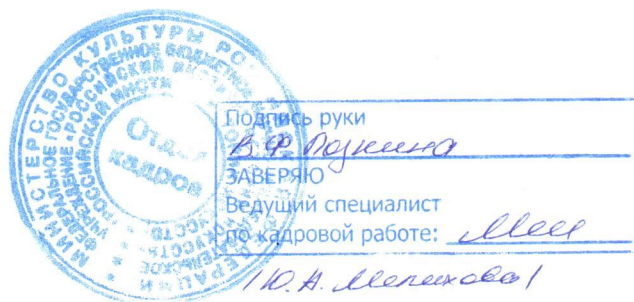 МИНИСТЕРСТВО КУЛЬТУРЫ
ФЕДЕРАЛЬНОЕ ГОСУДАРСТВЕННОЕ БЮДЖЕТНОЕ
УЧРЕЖДЕНИЕ «РОССИЙСКИЙ
Отдел
кадров
Подпись руки
В.Ф. Познина
ЗАВЕРЯЮ
Ведущий специалист
по кадровой работе:
/Ю.А. Мелихова/